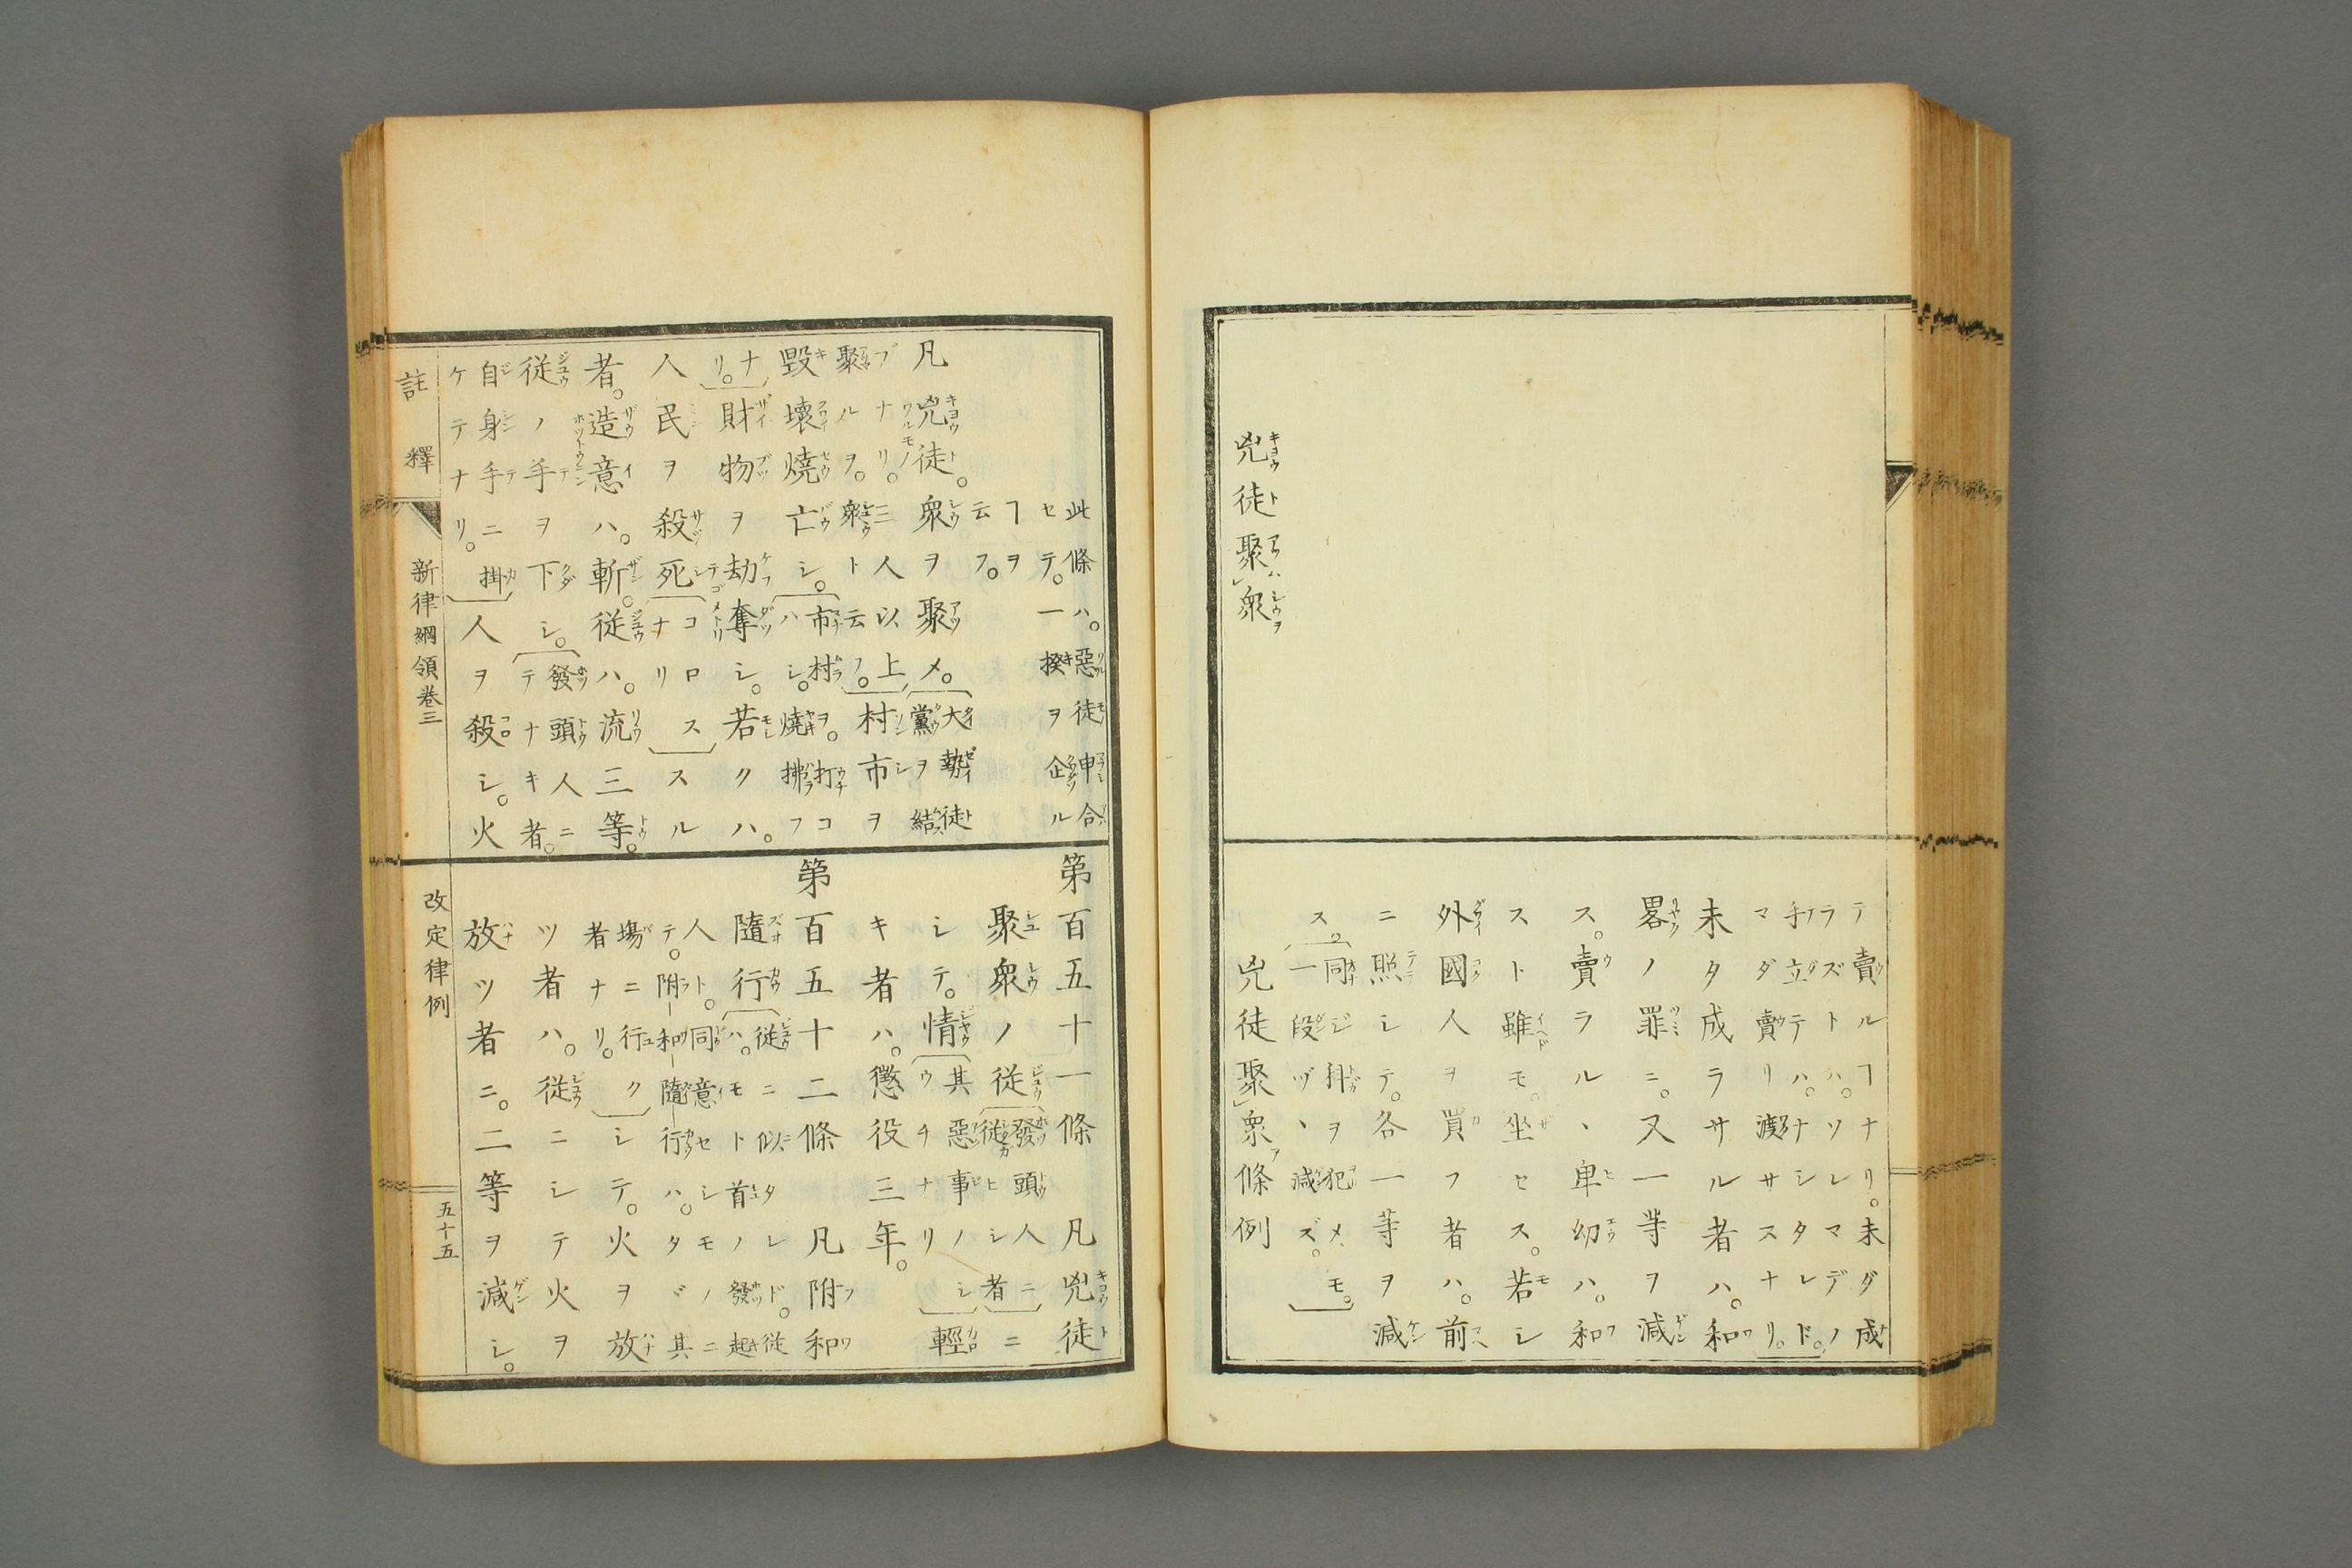 兇徒聚レ衆
テ賣ルヿナリ。未ダ成
ラズトハ。ソレマデノ
手立テハ。ナシタレド。
マダ賣リ渡サスナリ。
未タ成ラサル者ハ。和
畧ノ罪ニ。又一等ヲ減
ス。賣ラルヽ卑幼ハ。和
スト雖モ。坐セス。若シ
外國人ヲ買フ者ハ。前
ニ照シテ。各一等ヲ減
ス。同ジ掛ヲ犯メモ。
一段ヅヽ減ズ。
兇徒聚レ衆條例
此條ハ。惡徒申合
セテ。一揆ヲ企ル
ヿヲ云フ。
凡兇徒。衆ヲ聚メ。大勢徒
黨ヲ結
ブナリ。三人以上
聚ルヲ。衆ト云フ。村市ヲ
毀壞燒亡シ。市村ヲ。打コ
ハシ。燒拂フ
ナリ。財物ヲ劫奪シ。若クハ。
人民ヲ殺死コロス
ナリスル
者。造意ハ。斬。從ハ。流三等。
從ノ手ヲ下シ。發頭人ニ
テナキ者。
自身手ニ掛
ケテナリ。人ヲ殺シ。火
第百五十一條 凡兇徒
聚衆ノ從發頭人ニ
從カヒシ者ニ
シテ。情其惡事ノ
ウチナリシ輕
キ者ハ。懲役三年。
第百五十二條 凡附和
隨行從ニ似タレド。從
ハ。モト首ノ發起ニ
人ト。同意セシモノニ
テ。附和隨行ハ。タヾ其
場ニ行ク
者ナリ。シテ。火ヲ放
ツ者ハ。從ニシテ火ヲ
放ツ者ニ。二等ヲ減シ。
註釋 新律綱領卷三
改定律例 五十五